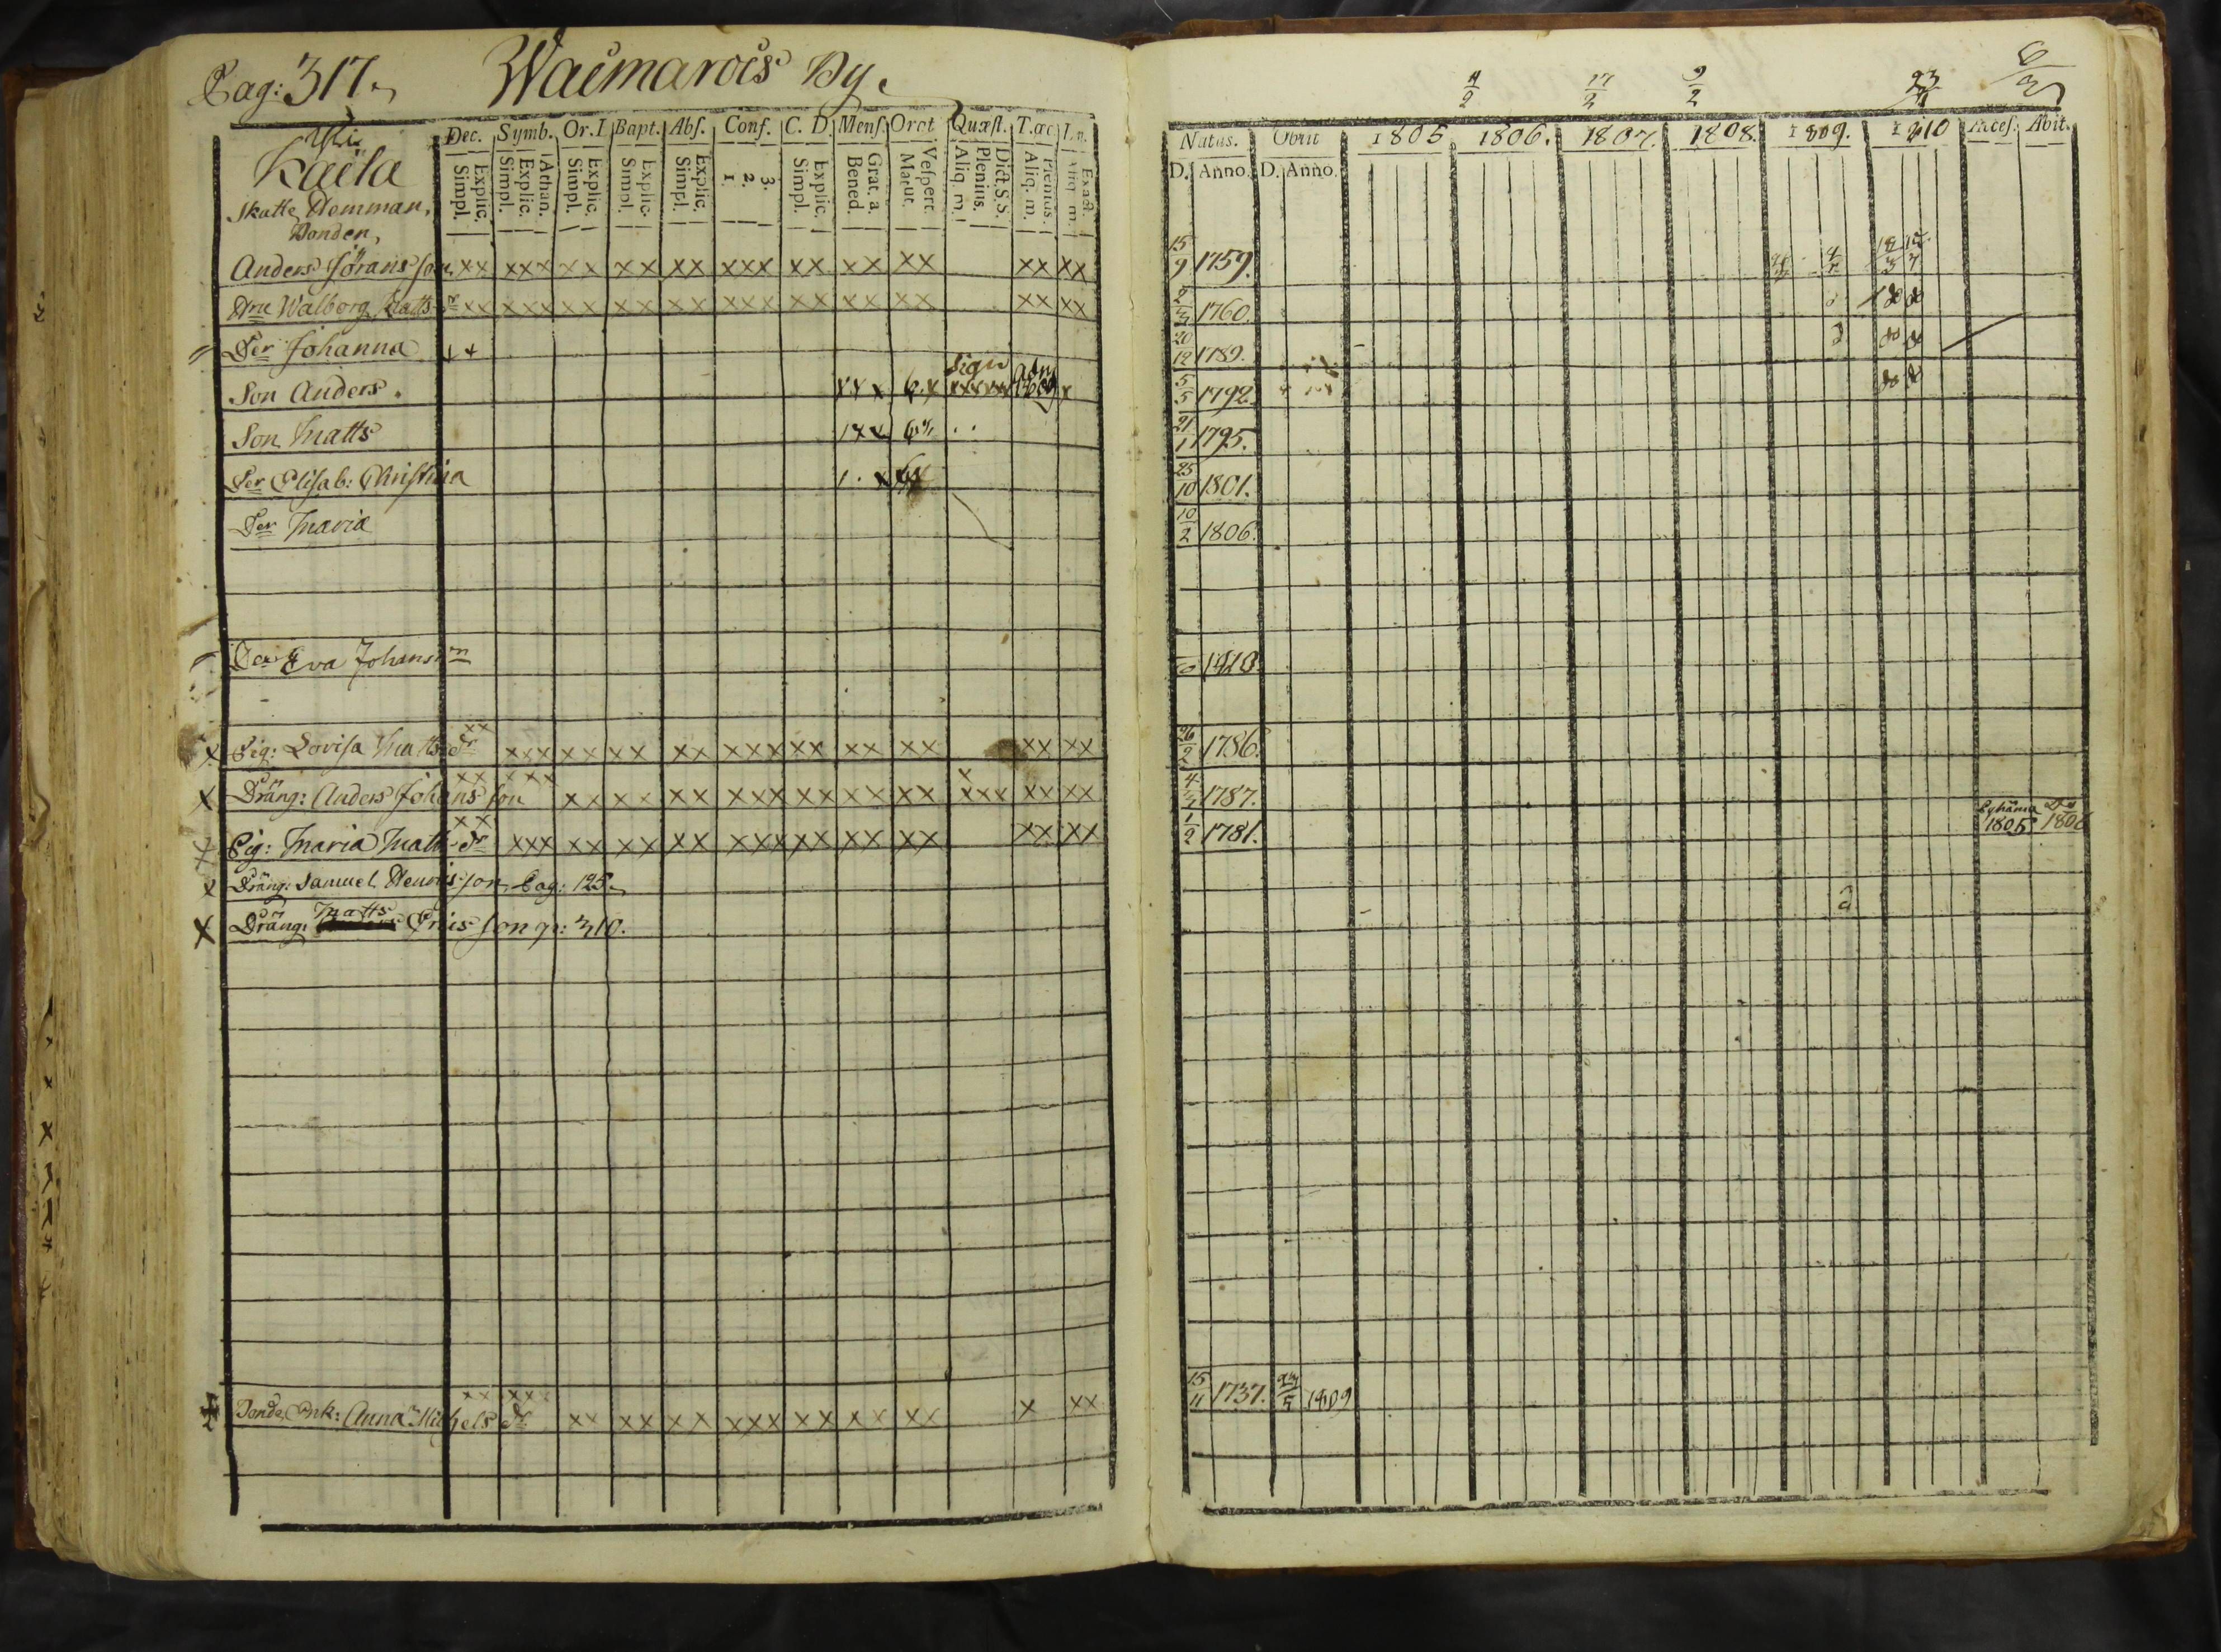 Pag: 317. Waimarois By.
Yli
Kaila
Skatte Hemman.
Bonden,
Dec. Symb. Or. Bapt. Abs. Conf. C. D. Mens. Orat Quæst. T. œc
Explic. Simpl. Athan. Explic. Simpl. Explic. Simpl. Explic. Simpl. Explic. Simpl. 3. 2. 1. Explic. Simpl. Grat. a. Bened. Vespert. Matut. Dict. S.S. Plenius. Aliq. m. Plenius. Aliq. m. Exact. Aliq. m.
Natus. Obiit 1805 1806. 1807. 1808. 1809. 1810 Acces. Abit.
D. Anno. D. Anno.
Anders Jörans son xx xxx xx xx xx xxx xx xx xx xx xx 15/9 1759.
Walborg Matts dr xx xxx xx xx xx xxx xx xx xx xx xx 1760.
Der Johanna 20/12 1789.
Son Anders. 5/5 1792.
Son Matts 21/1 1795.
Der Elisab: Christina 25/10 1801.
Der Maria 10/2 1806.
Eva Johans
Pig: Lovisa Matts dr xx xxx xx xx xx xxx xx xx xx xx xx 26/2 1786.
Dräng: Anders Johans son xx xxx xx xx xx xxx xx xx xx xxx xx xx 1787.
Pig: Maria Matts dr xx xxx xx xx xx xxx xx xx xx xx xx 1/2 1781. 1805 1806
Dräng: Samuel Henrisson Pag: 125.
Dräng: Matts Erics son p: 310.
Enk: Anna Michels dr xx xxx xx xx xx xxx xx xx xx x xx 15/11 1737. 1809